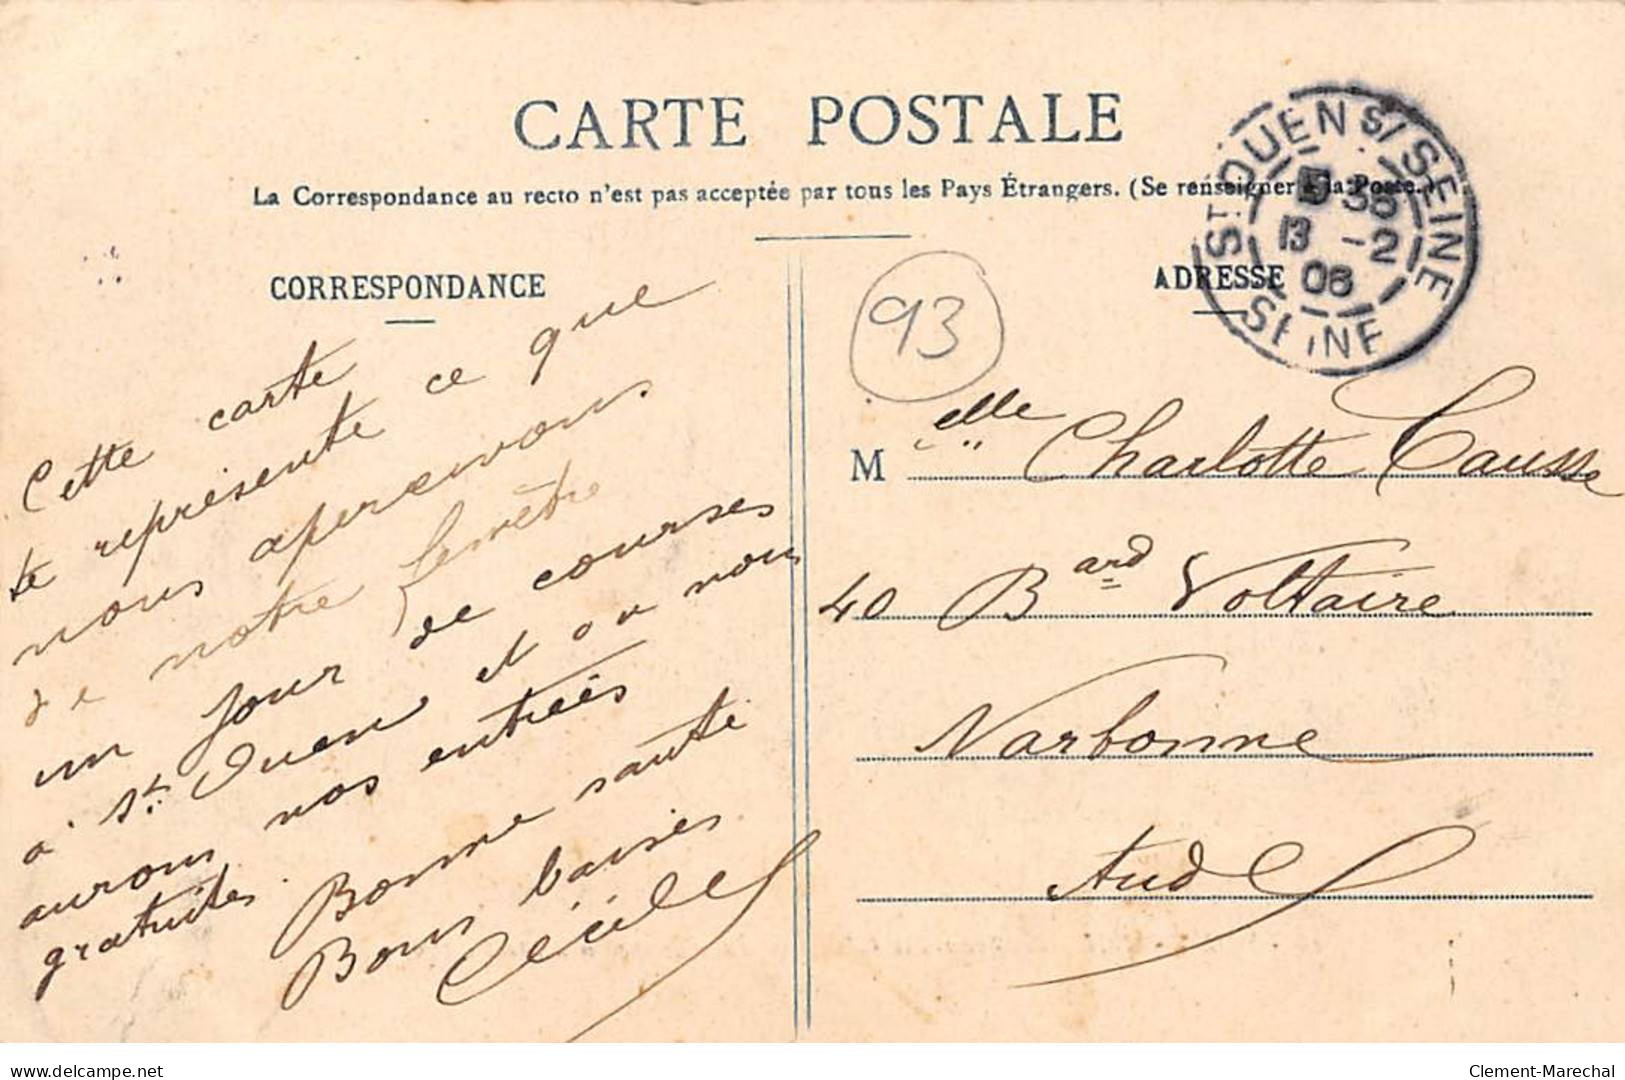 CARTE POSTALE
La Correspondance au recto n'est pas acceptée par tous les Pays Étrangers. (Se renseigner à la Poste.)
CORRESPONDANCE
Cette carte
te représente ce que
nous apercevons
de notre fenêtre
un jour de courses
à St. Ouen et où nous
aurons nos entrées
gratuites.
Bonne santé
Bons baisers
Cécile
ADRESSE
ST OUEN S/SEINE
35
13 -2
06
SEINE
93
Melle Charlotte Causse
40 Bard Voltaire
Narbonne
Aude
Clement-Marechal